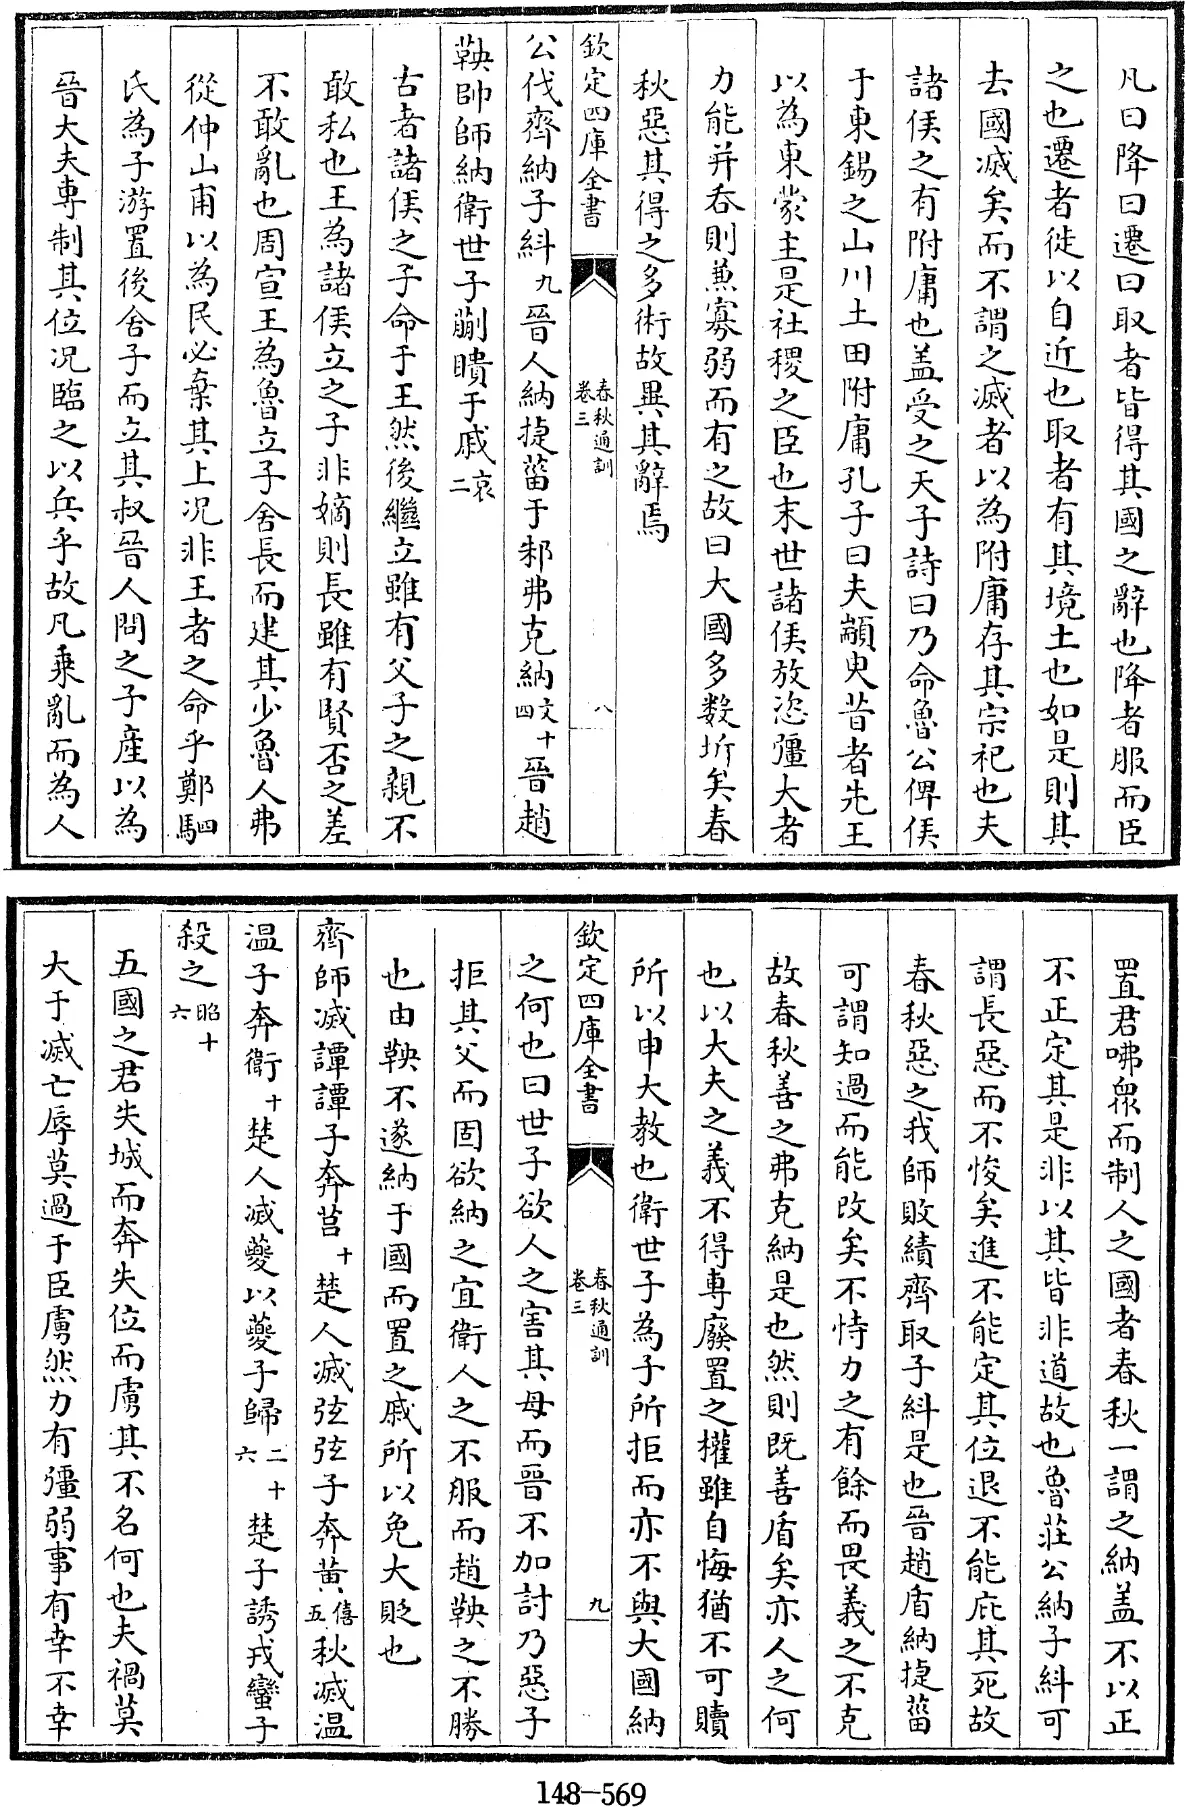 凡曰降曰遷曰取者皆得其國之辭也降者服而臣
之也遷者徙以自近也取者有其境土也如是則其
去國滅矣而不謂之滅者以為附庸存其宗祀也夫
諸侯之有附庸也盖受之天子詩曰乃命魯公俾侯
于東錫之山川土田附庸孔子曰夫顓臾昔者先王
以為東蒙主是社稷之臣也末世諸侯放恣彊大者
力能并吞則兼寡弱而有之故曰大國多數圻矣春
秋惡其得之多術故異其辭焉
欽定四庫全書 春秋通訓 卷三 八
公伐齊納子糾九晉人納捷菑于邾弗克納文十四晉趙
鞅帥師納衛世子蒯聵于戚哀二
古者諸侯之子命于王然後繼立雖有父子之親不
敢私也王為諸侯立之子非嫡則長雖有賢否之差
不敢亂也周宣王為魯立子舍長而建其少魯人弗
從仲山甫以為民必棄其上况非王者之命乎鄭駟
氏為子游置後舍子而立其叔晉人問之子產以為
晉大夫専制其位况臨之以兵乎故凡乗亂而為人
置君咈衆而制人之國者春秋一謂之納盖不以正
不正定其是非以其皆非道故也魯莊公納子糾可
謂長惡而不悛矣進不能定其位退不能庇其死故
春秋惡之我師敗績齊取子糾是也晉趙盾納捷菑
可謂知過而能改矣不恃力之有餘而畏義之不克
故春秋善之弗克納是也然則既善盾矣亦人之何
也以大夫之義不得專廢置之權雖自悔猶不可贖
所以申大教也衛世子為子所拒而亦不與大國納
欽定四庫全書 春秋通訓 卷三 九
之何也曰世子欲人之害其母而晉不加討乃惡子
拒其父而固欲納之宜衛人之不服而趙鞅之不勝
也由鞅不遂納于國而置之戚所以免大貶也
齊師滅譚譚子奔莒十楚人滅弦弦子奔黄僖五秋滅温
温子奔衛十楚人滅夔以夔子歸二十六楚子誘戎蠻子
殺之昭十六
五國之君失城而奔失位而虜其不名何也夫禍莫
大于滅亡辱莫過于臣虜然力有彊弱事有幸不幸
148-569